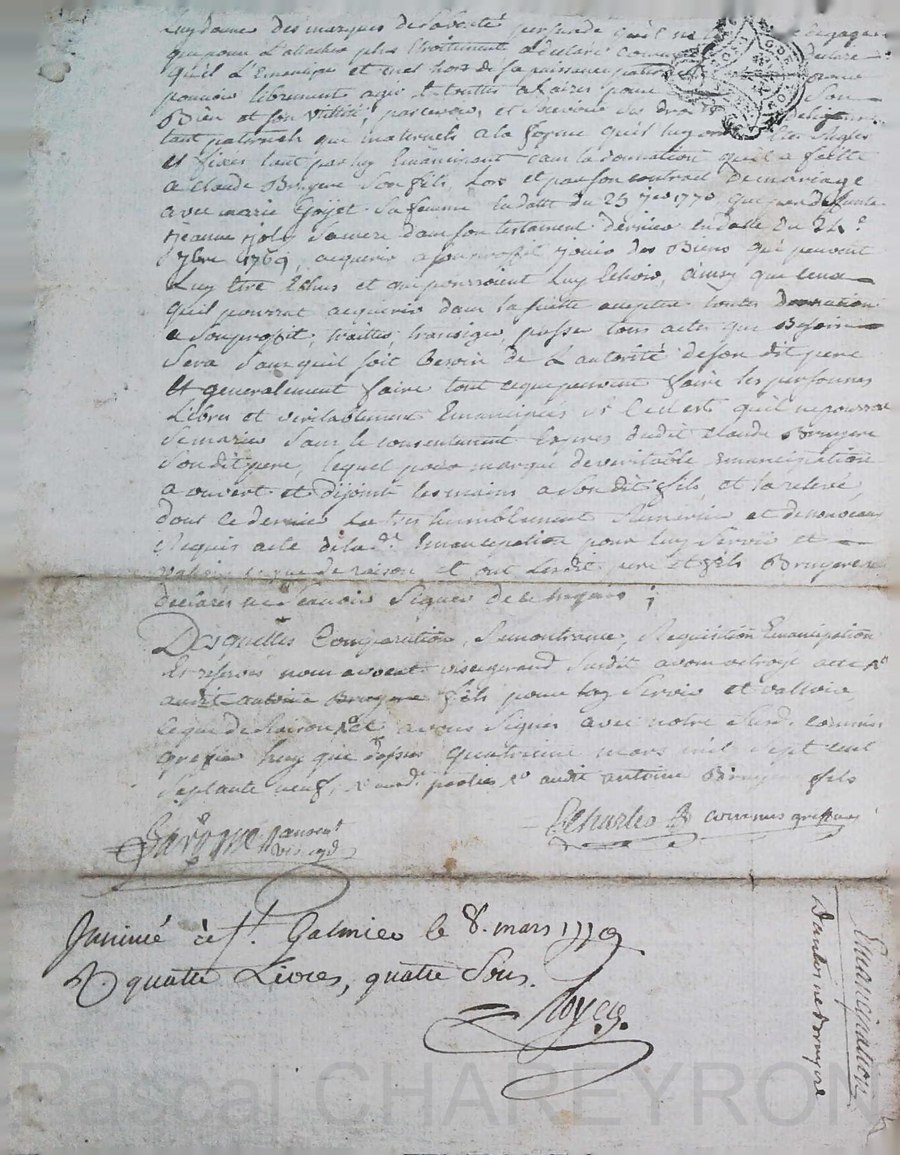 Luy donne des marques de sa bonté persuadé qu'il ne
que pour l'attacher plus Etroitement a declaré
qu'il L'Emancipe et met hors de sa puissance
pouvoir librement agir toutes affaires pour son
Bien et son utilité, percevoir, et
tant paternels que maternels a la forme qu'il luy
et fixés tant par luy Emancipant dans la donnation qu'il a faitte
a Claude Bruyere Son fils, Lors et par son contrat de mariage
avec marie Goyet Sa femme En datte du 23 1770, que par deffunte
jeanne joly Sa mere dans son testament dernier en datte du 24.e
1769, acquerir a son profit jouir des Biens qui peuvent
Luy être Echus et qui pourroient Luy Echoir, ainsy que ceux
qu'il pourrat acquerir dans la suitte accepter toutes donnation
a Son profit, traitter, transiger, passer tous actes que Besoin
Sera Sans qu'il soit Besoin de L'autorité de son dit pere
Et generalement faire tout ce que peuvent faire les personnes
Libres et veritablement Emancipées Si Ce n'est qu'il ne pourrat
Se marier Sans le consentement Exprès dudit Claude Bruyere
Son dit pere, lequel pour marque de veritable Emancipation
a ouvert et dijoint les mains a Son dit fils, et l'a relevé,
dont ce dernier L'a tres humblement Remercié et de nouveau
Requis acte de lad.e Emancipation pour luy Servir et
valoir ce que de raison et ont Lesdits pere et fils Bruyere
declarés ne Scavoir Signer de ce Enquis ;
Desquelles Comparution, Remontrance, Requisition Emancipation
et reserves nous avocat visegerand Susdit avons octroyé acte
audit antoine Bruyere fils pour luy Servir et valloir
ce que de Raison Et avons Signés avec notre Susd. commis
greffier huy que dessus quatrieme mars mil Sept cent
Septante neuf, audit antoine Bruyere fils
Echarles commis greffier
Insinué à St. Galmier le 8. mars 1779
R quatre Livres, quatre Sous.
Royer.
Emancipation
D'antoine Bruyere
Pascal CHAREYRON